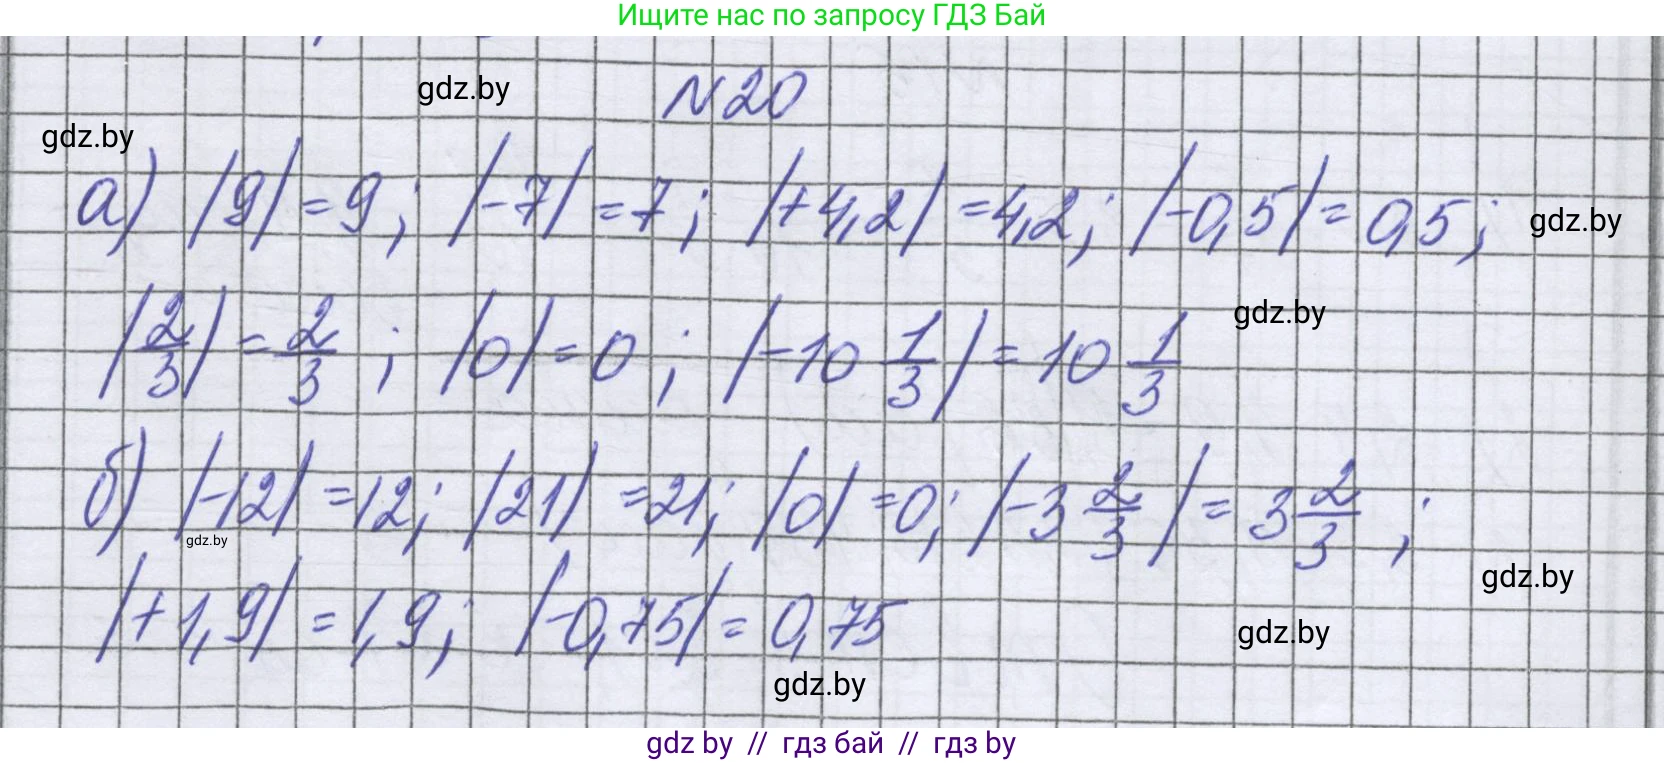 Ищите нас по запросу ГДЗ Бай
gdz.by
N20
gdz.by
а) |9| = 9; |-7| = 7; |+4,2| = 4,2; |-0,5| = 0,5;
gdz.by
gdz.by
|2/3| = 2/3; |0| = 0; |-10 1/3| = 10 1/3
б) |-12| = 12; |21| = 21; |0| = 0; |-3 2/3| = 3 2/3;
gdz.by
gdz.by
|+1,9| = 1,9; |-0,75| = 0,75
gdz.by
gdz.by
gdz by // гдз бай // гдз by